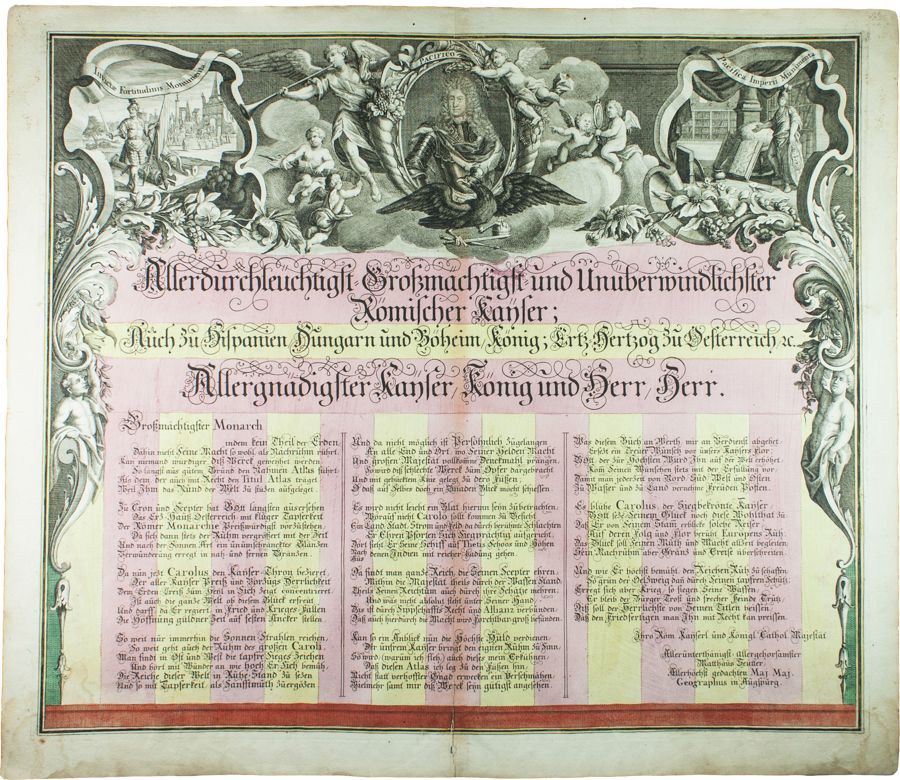 Invictæ Fortitudinis Monumenta
PACIFICO
Pacifica Imperii Munimenta
Allerdurchleuchtigst-Großmächtigst-und Unuberwindlichster
Römischer Kaÿser;
Auch zu Hispanien Hungarn und Böheim/König; Ertz-Hertzog zu Oesterreich &c.
Allergnädigster Kaÿser/König und Herr/Herr.
Großmächtigster Monarch
indem kein Theil der Erden,
Dahin nicht Seine Macht so wohl als Nachruhm rührt,
Kan niemand würdiger diß Werck geweyhet werden
So längst aus gutem Grund den Nahmen Atlas führt;
Als dem, der auch mit Recht den Titul Atlas träget,
Weil Ihm das Rund der Welt zu stützen aufgeleget.
Zu Cron und Scepter hat Gott längsten ausersehen
Das Ertz-Hauß Oesterreich, mit kluger Tapferkeit
Der Römer Monarchie Preißwürdigst vorzustehen,
Da sich dann stets der Ruhm vergrößert mit der Zeit
Und nach der Sonnen Art ein unauslöschliches Gläntzen
Verwunderung erregt in nah- und fernen Gräntzen.
Da nun jetzt Carolus den Kaÿser-Thron bezieret,
Der aller Kaÿser Preiß und Vorzugs Herrlichkeit
Dem Erden Creiß zum Heil in Sich zeigt concentrieret,
Ist auch die gantze Welt ob diesem Glück erfreut
Und darff, da Er regiert, in Fried und Krieges-Fällen
Die Hoffnung güldner Zeit auf festen Ancker stellen.
So weit nur immerhin die Sonnen Strahlen reichen,
So weit geht auch der Ruhm des großen Caroli
Man findt in Ost und West die tapfre Sieges Zeichen
Und hört mit Wunder an wie hoch Er Sich bemüh,
Die Reiche dieser Welt in Ruhe-Stand zu setzen
Und so mit Tapferkeit als Sanfftmuth zu ergötzen.
Und da nicht möglich ist Persöhnlich zugelangen
An alle End und Ort, wo Seiner Helden Macht
Und großen Majestät vollkom̅ne Denckmahl prangen,
So wird diß schlechte Werck zum Opfer dargebracht
Und mit gebücktem Knie gelegt zu dero Füßen,
O daß auf selbes doch ein Gnaden Blick möcht schießen.
Es wird nicht leicht ein Blat hierinn sehn zubetrachten,
Worauf nicht Carolo sollt kommen zu Gesicht
Ein Land, Stadt, Strom und Feld, da durch berühmte Schlachten
Er Ehren Pforten Sich Siegprächtig aufgericht,
Dort sieht Er Seine Schiff auf Thetis Schoos und Höhen
Nach denen Indien mit reicher Ladung gehen.
Aus
Da findt man gantze Reich, die Seinen Scepter ehren,
Mithin die Majestät theils durch der Waffen Stand,
Theils Seinen Reichtum auch durch ihre Schätze mehren,
Und was nicht absolut steht unter Seiner Hand,
Das ist durch Sippschaffts Recht und Allianz verbunden,
Daß auch hierdurch die Macht wird forchtbar-groß befunden.
Kan so ein Anblick nun die Höchste Huld verdienen,
Der unsrem Kaÿser bringt den eignen Ruhm zu Sinn,
So wird (warum ich fleh) auch dieses mein Erkühnen,
Daß diesen Atlas ich leg zu den Füßen hin,
Nicht statt verhoffter Gnad erwecken ein Verschmähen,
Vielmehr samt mir diß Werck seyn gütigst angesehen.
Was diesem Buch an Werth, mir an Verdienst abgehet,
Ersetz ein treuer Wunsch vor unsers Kaÿsers Flor:
Gott, der zur Höchsten Würd Ihn auf der Welt erhöhet,
Kom Seinen Wünschen stets mit der Erfüllung vor:
Damit man jederzeit von Nord, Süd, West und Osten
Zu Wasser und zu Land vernehme Freuden Posten.
Es blühe Carolus, der Sieg-bekrönte Kaÿser
Gott füg zu Seinem Glück noch diese Wohlthat zu:
Daß Er von Seinem Stam̅ erblick solche Reiser
Auf deren Folg und Flor beruht Europens Ruh,
Das Glück soll Seinen Muth und Macht allzeit begleiten,
Sein Nachruhm aber Gräntz und Creise überschreiten.
Und wie Er höchst bemüht, den Reichen Ruh zu schaffen,
So grün der Oelzweig dan durch Seinen tapfren Schutz,
Erregt sich aber Krieg, so siegen Seine Waffen,
Er bleib der Bürger Trost und frecher Feinde Trutz,
Diß soll der Herrlichste von Seinen Titlen heissen,
Daß den Friedfertigen man Ihn mit Recht kan preissen.
Ihro Röm. Kaÿserl. und Königl. Cathol. Majestät
Allerunterthänigst-allergehorsamster
Matthäus Seutter,
Allerhöchst gedachten Maj. Maj.
Geographus in Augspurg.